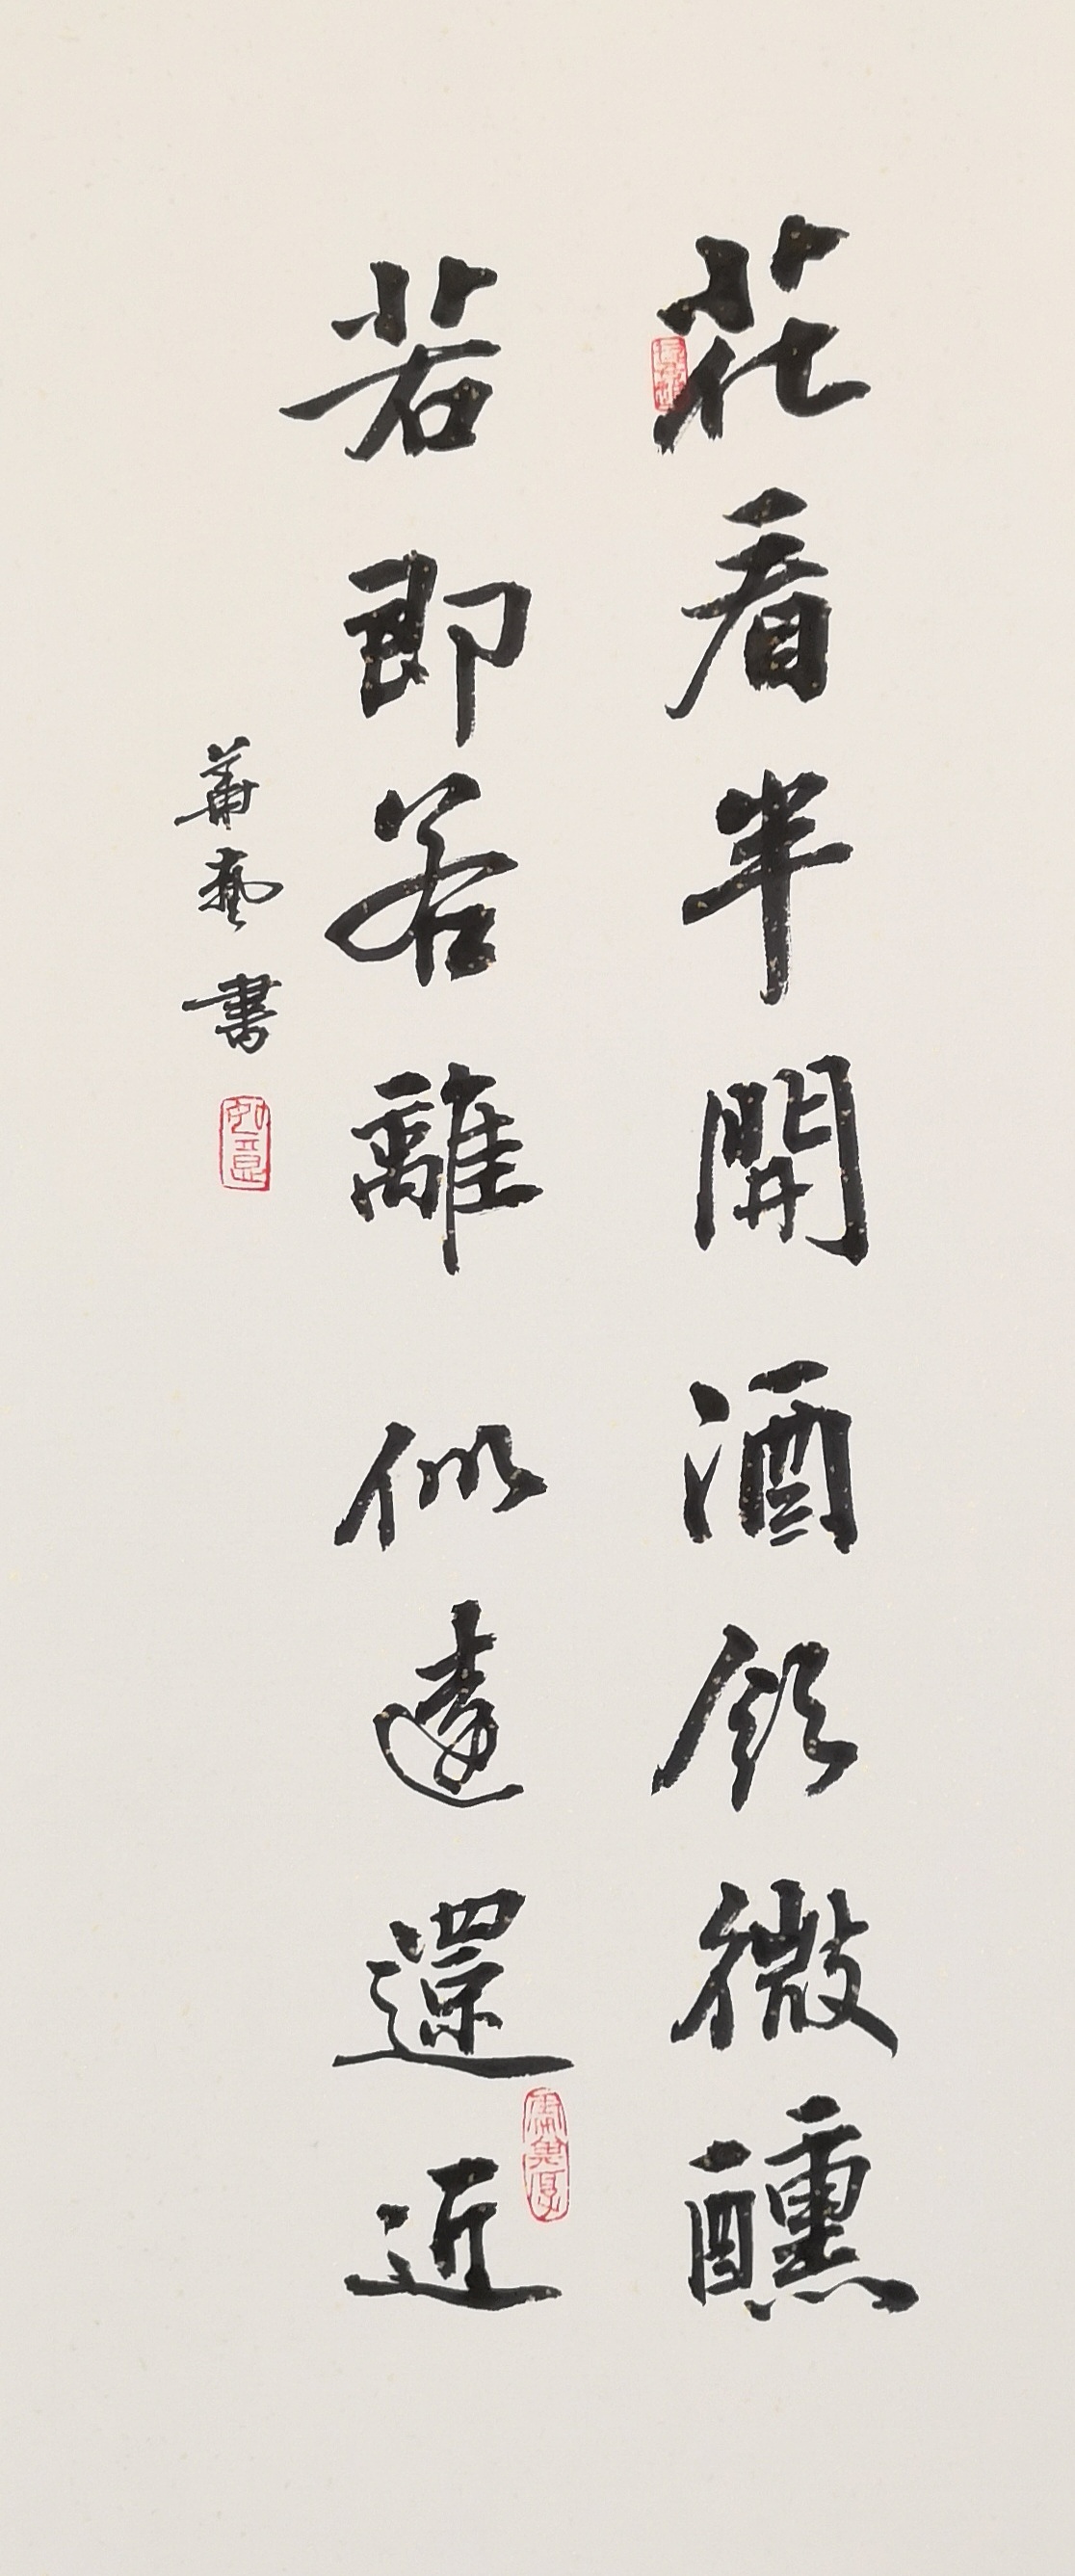 花看半開酒飲微醺
若即若離似遠還近
蕭藝書